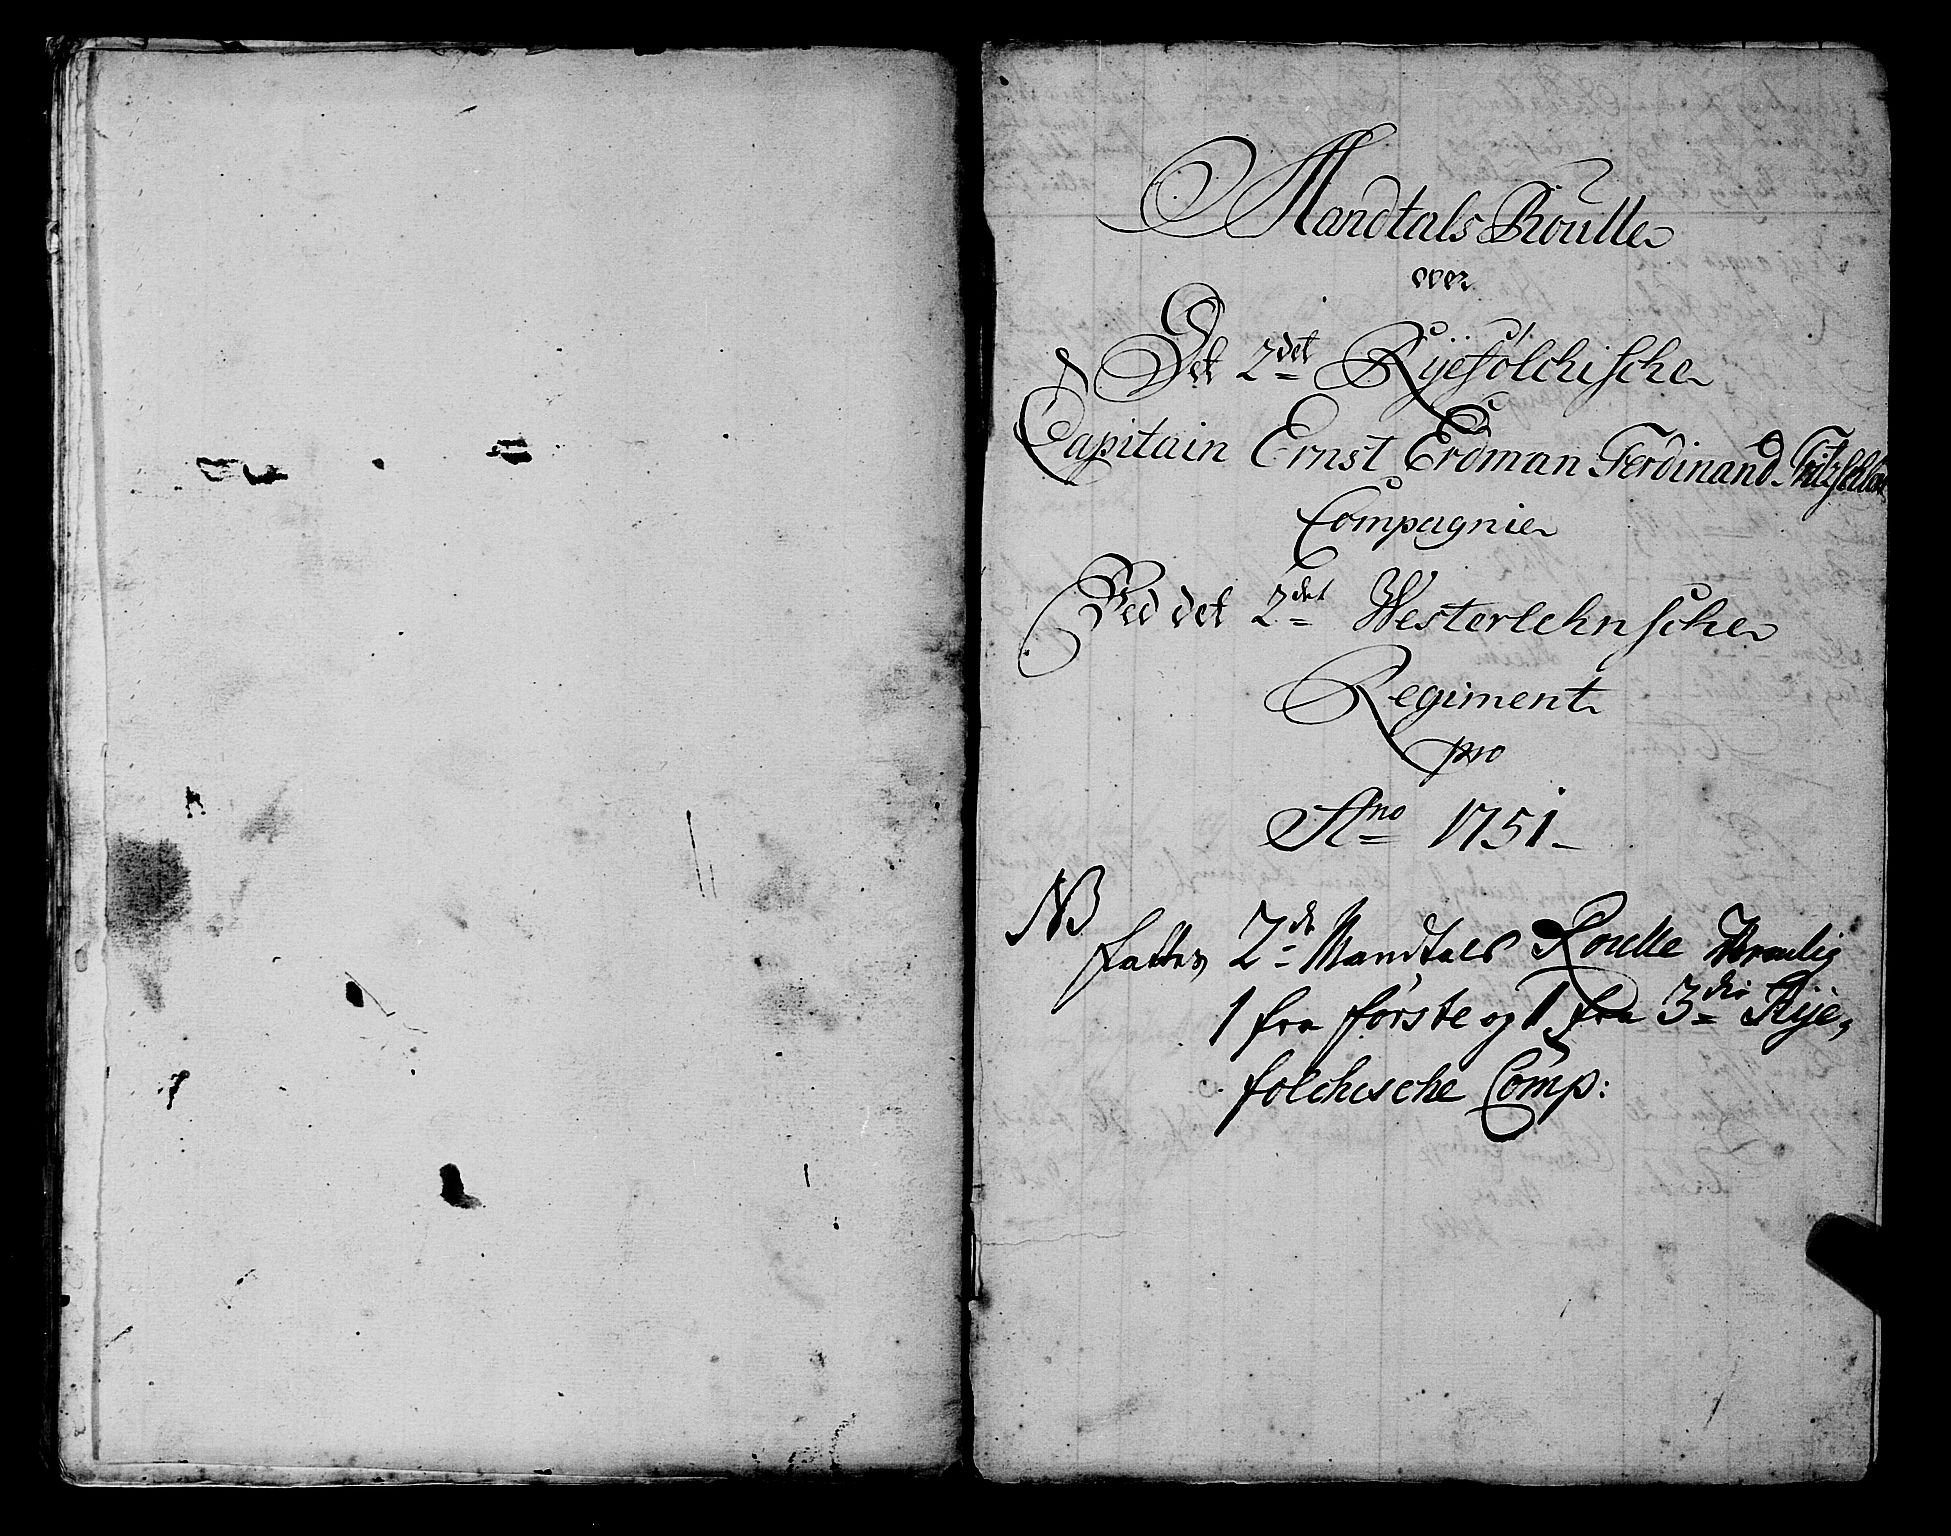 Mandtals Roulle
over
Det 2det Ryefölchische
Capitain Ernst Erdman Ferdinand
Compagnie
Ved det 2det Westerlehnsche
Regiment
pro
Ano 1751
NB
fattes 2de Mandtals Roulle
1 fra förste og 1 fra 3die Rye,
folchische Comp: